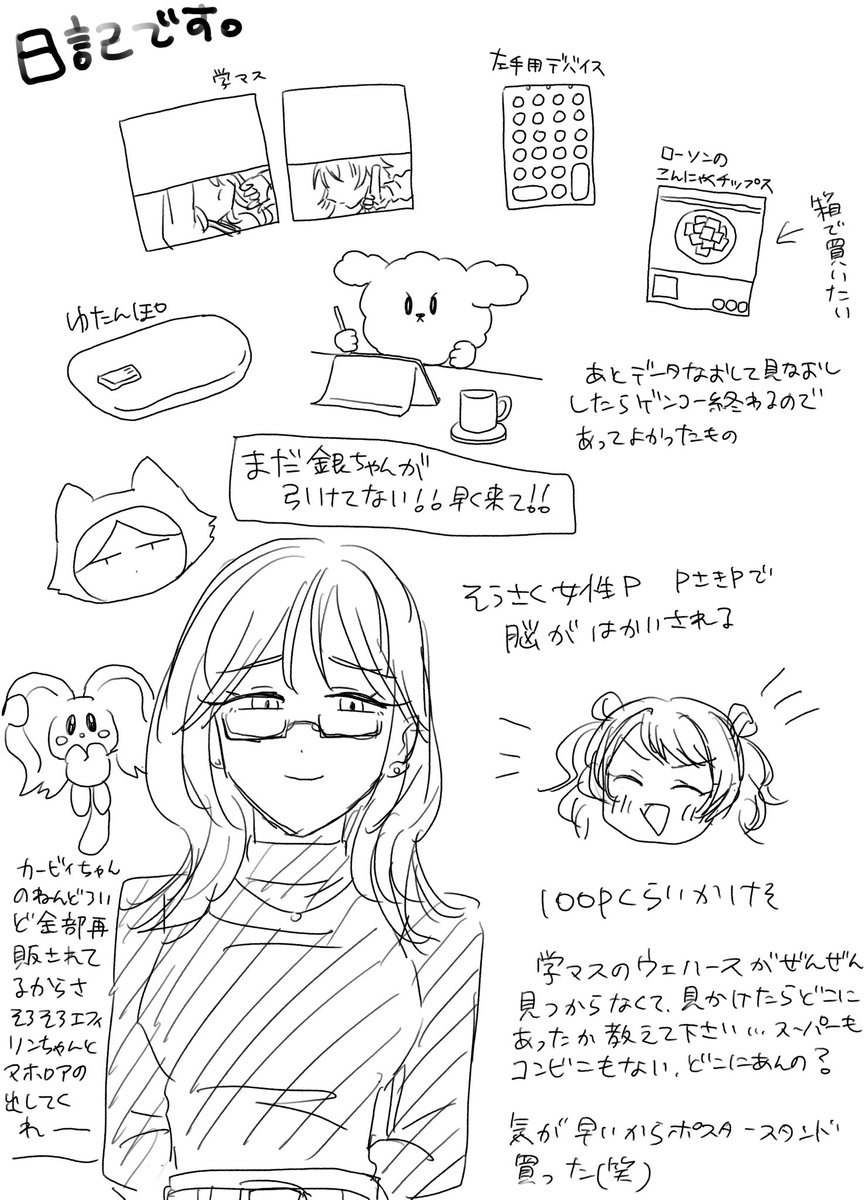 日記です。
学マス
左手用デバイス
ローソンの
こんにゃくチップス
箱で買いたい
ゆたんぽ
あとデータなおして見なおし
したらゲンコー終わるので
あってよかったもの
まだ銀ちゃんが
引けてない!!早く来て!!
そうさく女性P PさきPで
脳がはかいされる
カービィちゃん
のねんどろい
ど全部再
販されて
るからさ
そろそろエフィ
リンちゃんと
マホロアの
出してく
れー
100Pくらいかけそ
学マスのウエハースがぜんぜん
見つからなくて、見かけたらどこに
あったか教えて下さい…スーパーも
コンビニもない、どこにあんの?
気が早いからポスタースタンド
買った(笑)